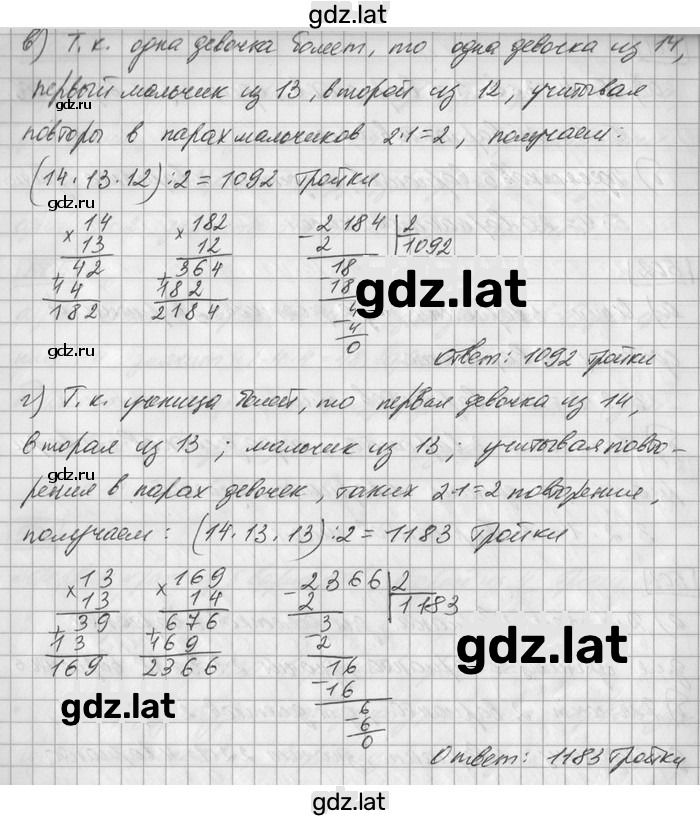 gdz.lat
в) Т.к. одна девочка болеет, то одна девочка из 14,
первый мальчик из 13, второй из 12, учитывая
повторы в парах мальчиков 2·1=2, получаем:
(14·13·12):2=1092 тройки
×14
13
+42
14
182
×182
12
+364
182
2184
-2184 | 2
2 | 1092
18
18
4
-4
0
gdz.lat
gdz.lat
Ответ: 1092 тройки
г) Т.к. ученица болеет, то первая девочка из 14,
вторая из 13; мальчик из 13; учитывая повто-
рения в парах девочек, таких 2·1=2 повторения,
получаем: (14·13·13):2=1183 тройки
×13
13
+39
13
169
×169
14
+676
169
2366
-2366 | 2
2 | 1183
3
-2
16
-16
6
-6
0
gdz.lat
gdz.lat
Ответ: 1183 тройки
gdz.lat